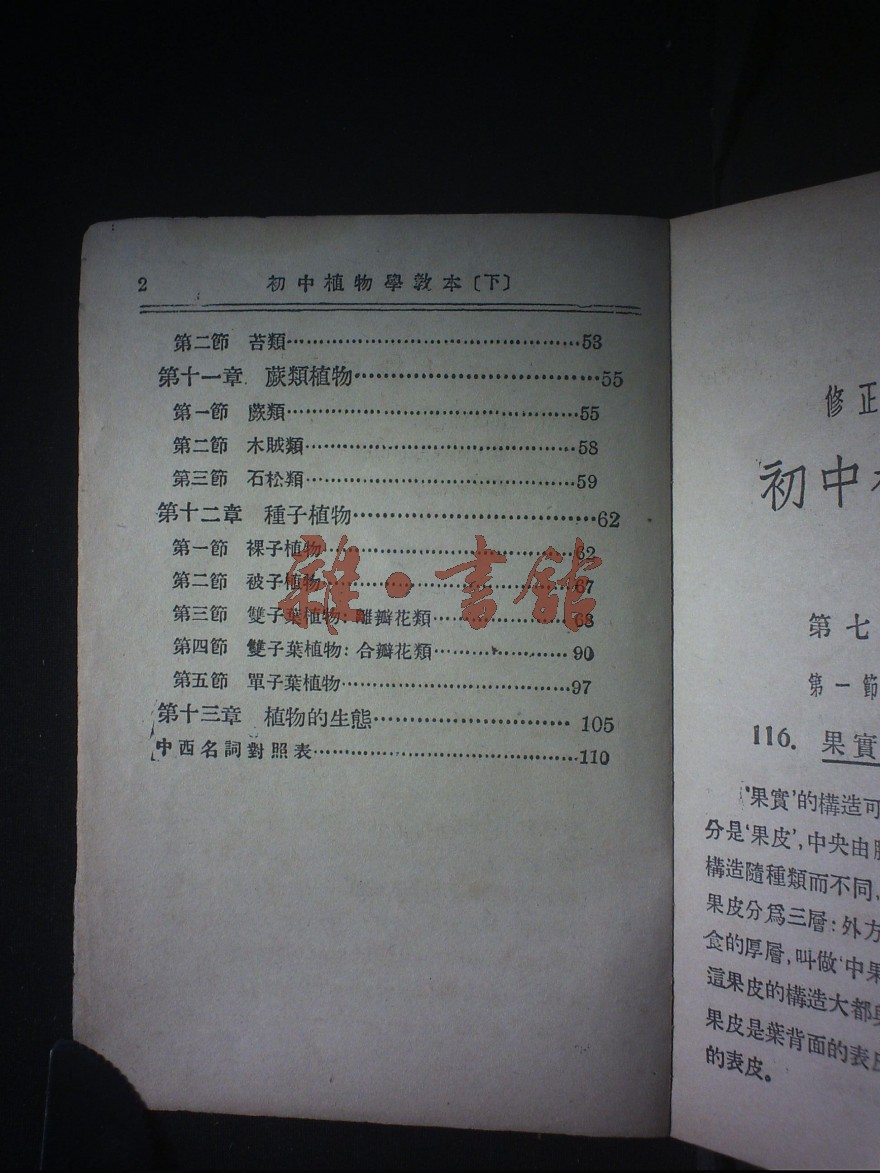 2 初中植物學敎本〔下〕
第二節 苔類……53
第十一章 蕨類植物……55
第一節 蕨類……55
第二節 木賊類……58
第三節 石松類……59
第十二章 種子植物……62
第一節 裸子植物……62
第二節 被子植物……67
第三節 雙子葉植物：離瓣花類……68
第四節 雙子葉植物：合瓣花類……90
第五節 單子葉植物……97
第十三章 植物的生態……105
中西名詞對照表……110
雜·書館
修正
初中
第七
第一節
116. 果實
‘果實’的構造可
分是‘果皮’，中央由
構造隨種類而不同，
果皮分爲三層：外方
食的厚層，叫做‘中果
這果皮的構造大都與
果皮是葉背面的表皮
的表皮。